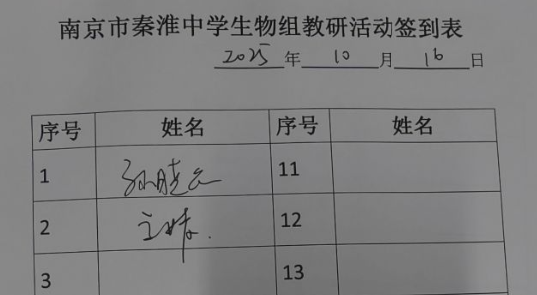 南京市秦淮中学生物组教研活动签到表
2025 年 10 月 16 日
序号 姓名 序号 姓名
1 孙晓云 11
2 12
3 13